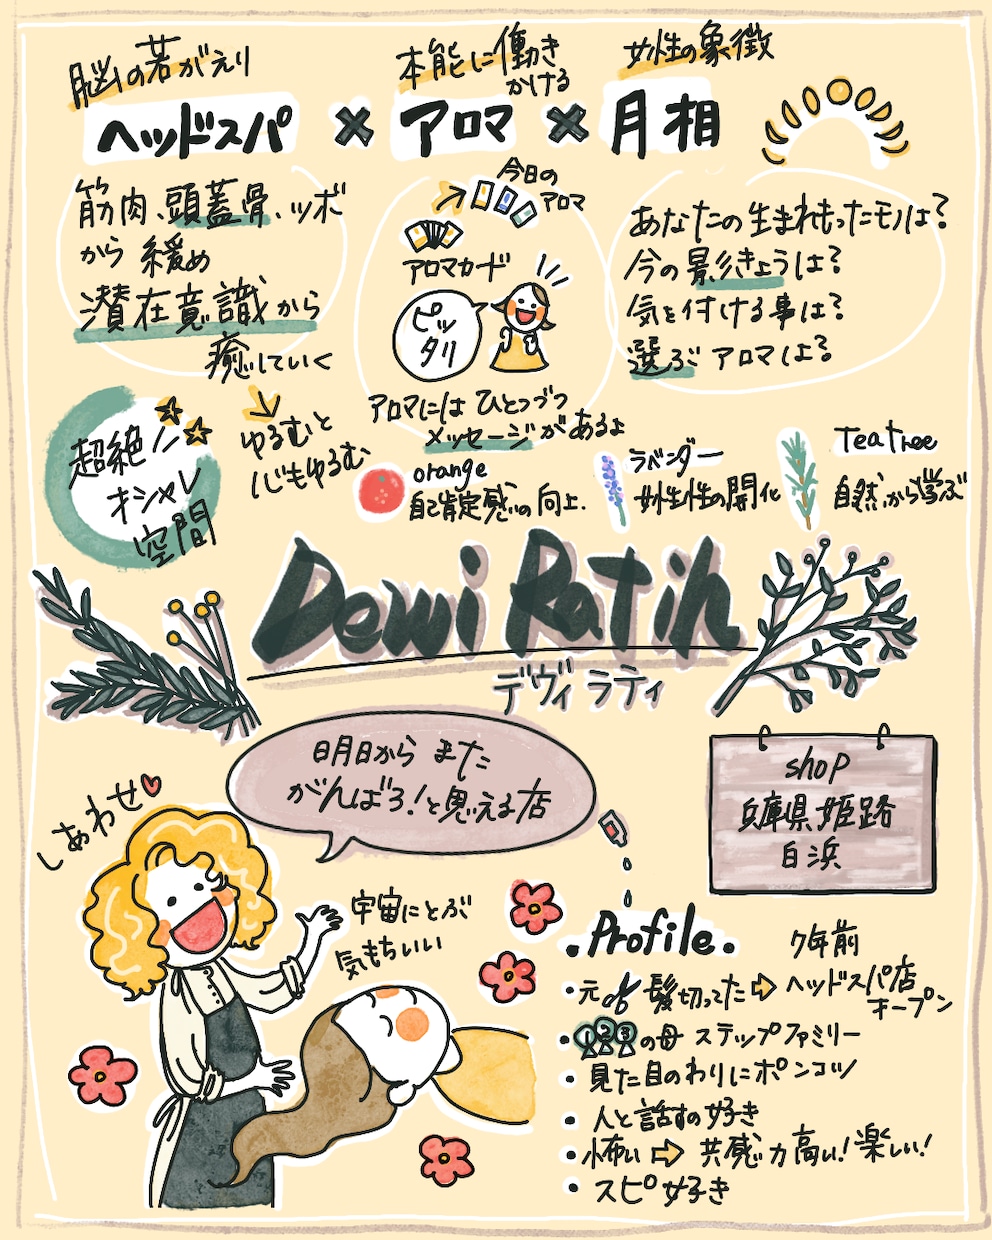 脳の若がえり
ヘッドスパ
×
本能に働き
かける
アロマ
×
女性の象徴
月相
筋肉、頭蓋骨、ツボ
から 緩め
潜在意識から
癒していく
ゆるむと
心もゆるむ
超絶!!
オシャレ
空間
今日の
アロマ
アロマカード
ピッ
タリ
アロマには ひとつづつ
メッセージがあるよ
あなたの生まれもったモノは?
今の影きょうは?
気を付ける事は?
選ぶ アロマは?
orange
自己肯定感の向上.
ラベンダー
女性性の開化
Tea tree
自然から学ぶ
Dewi Ratih
デヴィ ラティ
明日から また
がんばろ!と思える店
shop
兵庫県姫路
白浜
しあわせ
宇宙にとぶ
気もちいい
・Profile・
7年前
・元 髪切ってた⇨ヘッドスパ店
オープン
・1 2 3 の母 ステップファミリー
・見た目のわりにポンコツ
・人と話すの好き
・怖い⇨共感力高い!楽しい!
・スピ好き